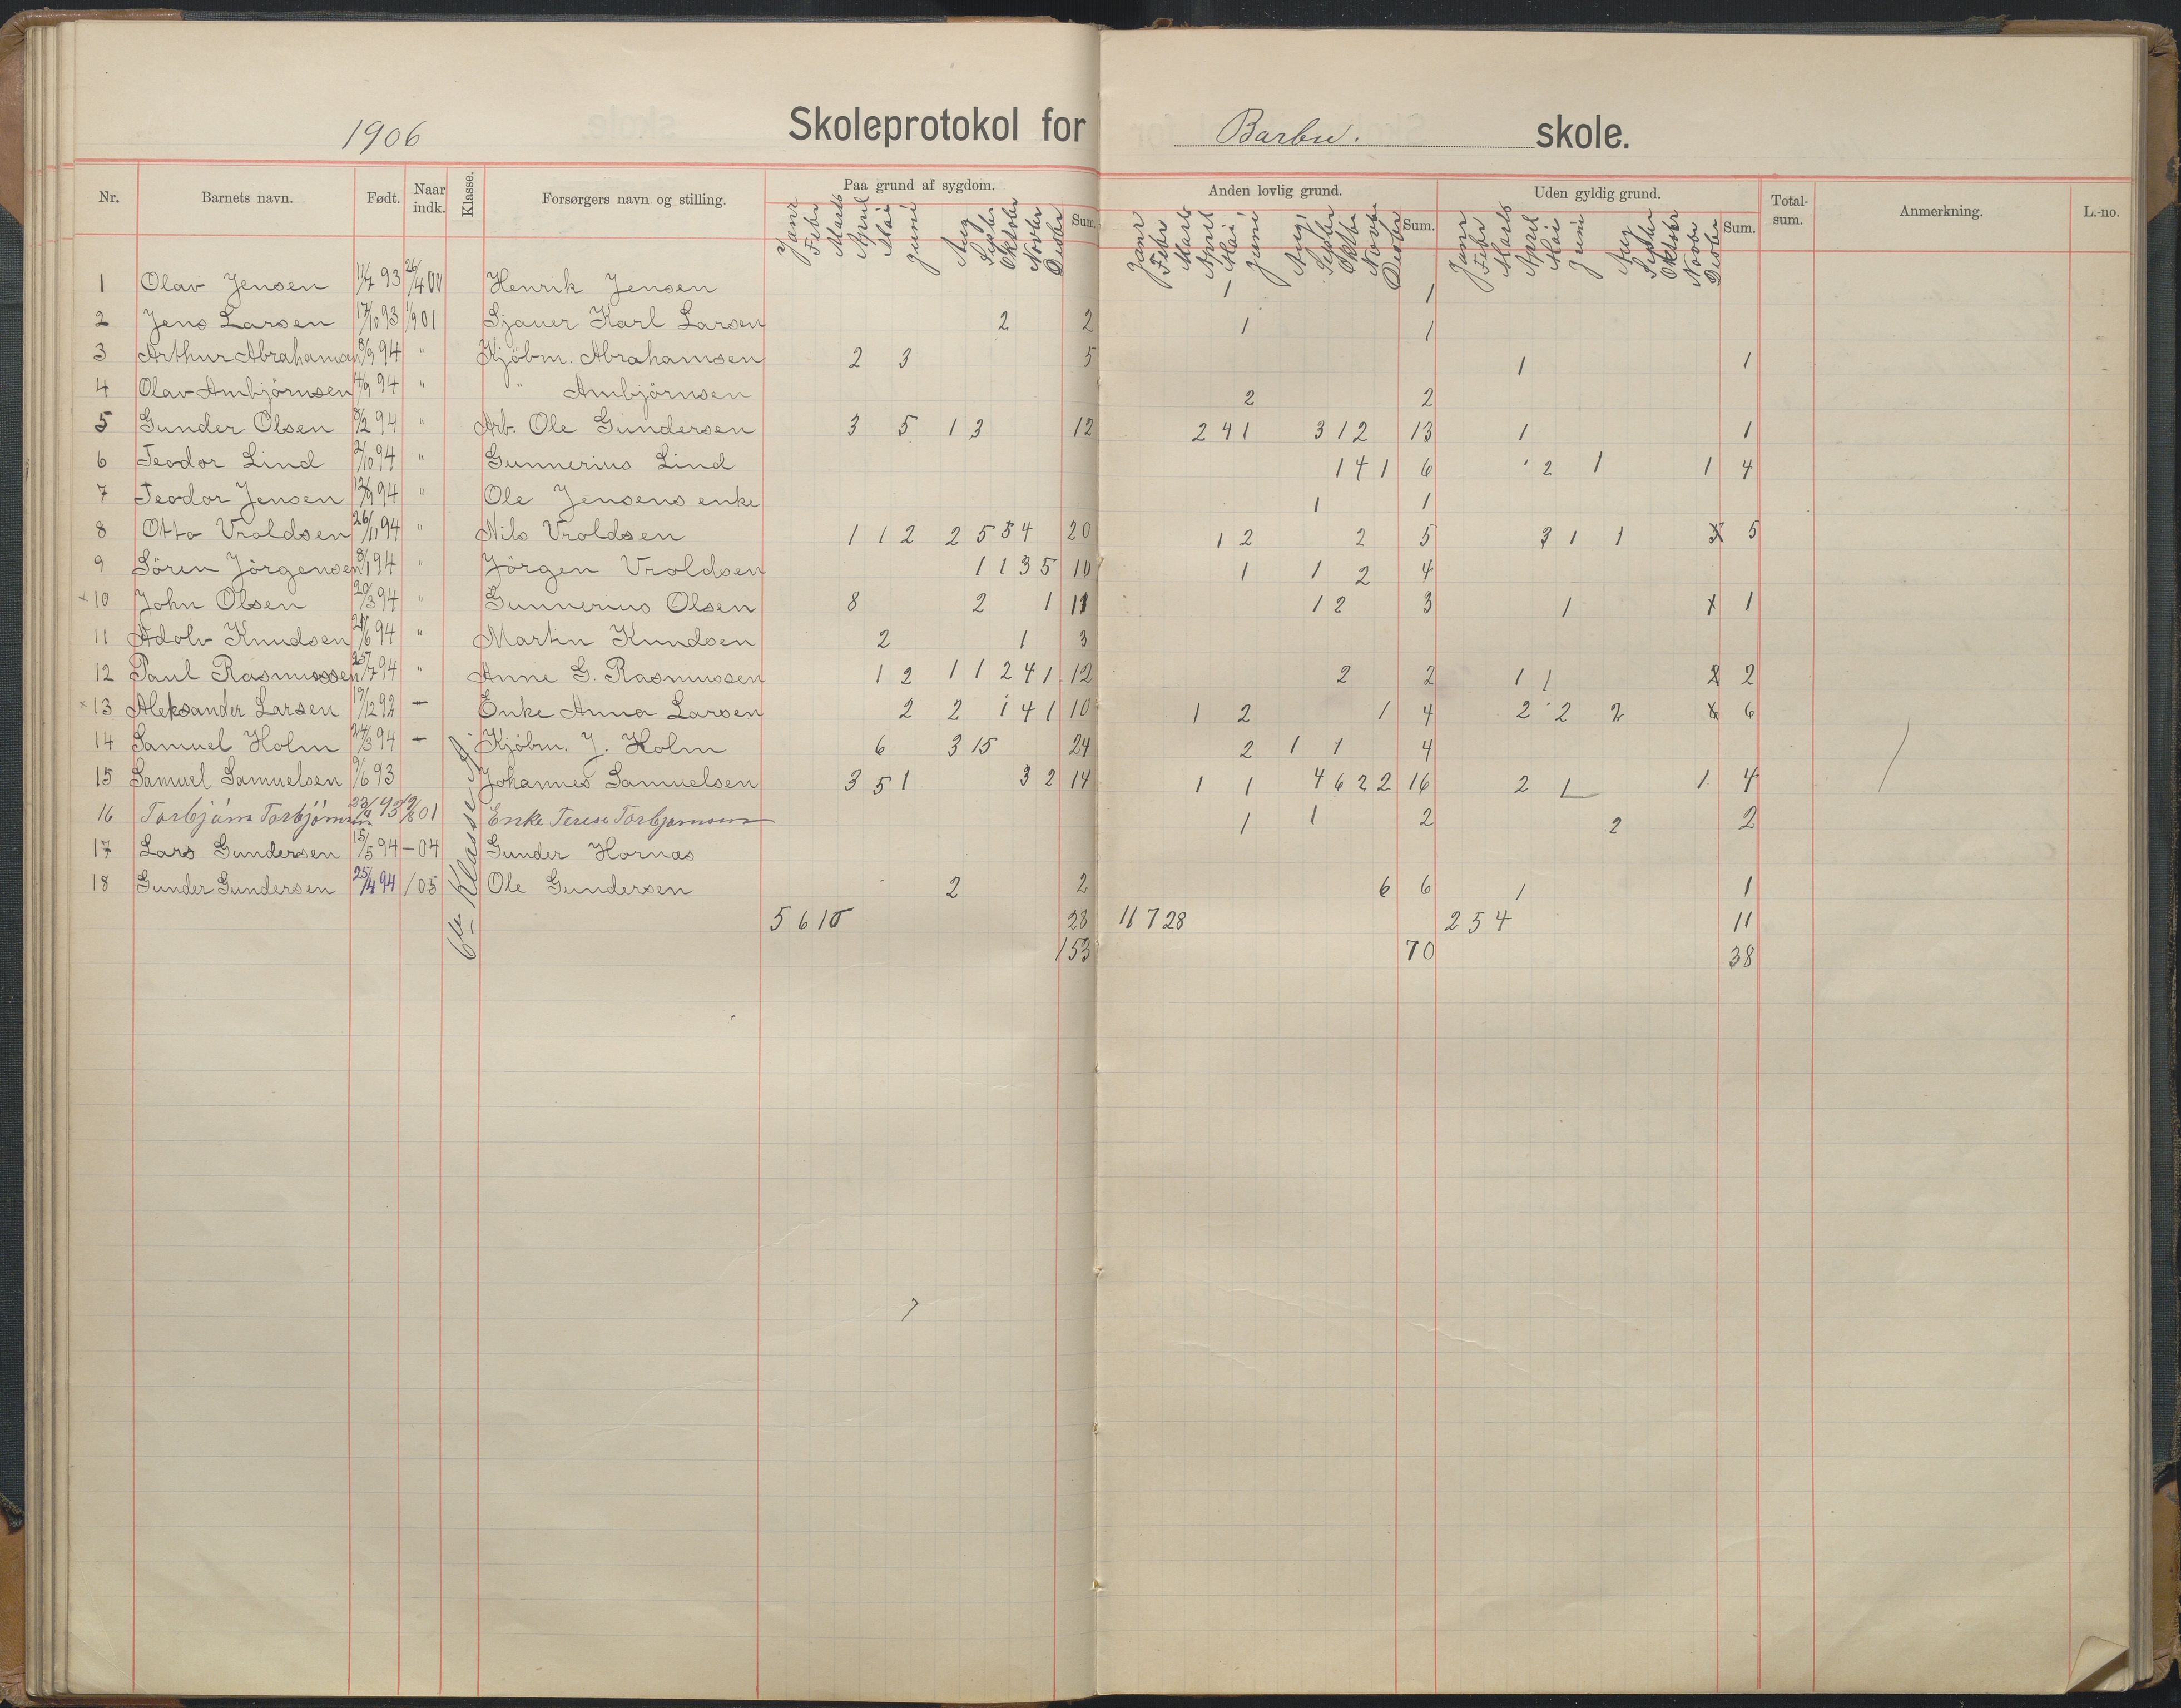 1906 Skoleprotokol for Barbu. skole.
Nr. Barnets navn. Født. Naar indk. Klasse. Forsørgers navn og stilling. Paa grund af sygdom. Anden lovlig grund. Uden gyldig grund. Total-sum. Anmerkning. L.-no.
Janr Febr Marts April Mai Juni Aug Septbr Oktober Novbr Desbr Sum Janr Febr Marts April Mai Juni Aug Septbr Oktbr Novbr Desbr Sum. Janr Febr Marts April Mai Juni Aug Septbr Oktobr Novbr Desbr Sum.
1 Olav Jensen 11/7 93 26/4 00 Henrik Jensen 1 1
2 Jens Larsen 17/10 93 1/9 01 Sjauer Karl Larsen 2 2 1 1
3 Arthur Abrahamsen 8/9 94 " Kjöbm. Abrahamsen 2 3 5 1 1
4 Olav Ambjörnsen 14/9 94 " " Ambjörnsen 2 2
5 Gunder Olsen 8/2 94 " Arb. Ole Gundersen 3 5 1 3 12 2 4 1 3 1 2 13 1 1
6 Teodor Lind 2/10 94 " Gunnerius Lind 1 4 1 6 2 1 1 4
7 Teodor Jensen 12/9 94 " Ole Jensens enke 1 1
8 Otto Vroldsen 26/11 94 " Nils Vroldsen 1 1 2 2 5 5 4 20 1 2 2 5 3 1 1 5
9 Sören Jörgensen 8/1 94 " Jörgen Vroldsen 1 1 3 5 10 1 1 2 4
×10 John Olsen 20/3 94 " Gunnerius Olsen 8 2 1 11 1 2 3 1 1
11 Adolv Knudsen 24/6 94 " Martin Knudsen 2 1 3
12 Paul Rasmussen 25/7 94 " Anne G. Rasmussen 1 2 1 1 2 4 1 12 2 2 1 1 2 2
×13 Aleksander Larsen 19/12 92 — Enke Anna Larsen 2 2 1 4 1 10 1 2 1 4 2 2 2 6
14 Samuel Holm 24/3 94 — Kjöbm. J. Holm 6 3 15 24 2 1 1 4
15 Samuel Samuelsen 9/6 93 Johannes Samuelsen 3 5 1 3 2 14 1 1 4 6 2 2 16 2 1 1 4
16 Torbjörn Torbjörnsen 01 Enke Terese Torbjörnsen 1 1 2 2 2
17 Lars Gundersen 15/5 94 — 04 Gunder Hornas
18 Gunder Gundersen 25/4 94 / 05 Ole Gundersen 2 2 6 6 1 1
6te Klasse
5 6 10 28 11 7 28 2 5 4 11
153 70 38